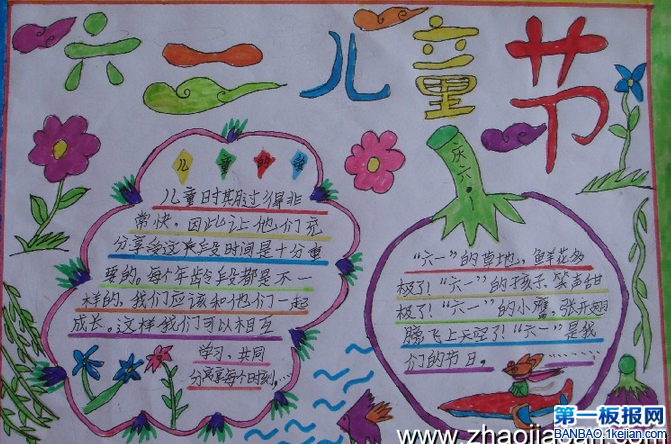 六一儿童节
儿童时期过得非
常快，因此让他们充
分享受这个阶段时间是十分重
要的。每个年龄段都是不一
样的，我们应该和他们一起
成长。这样我们可以相互
学习，共同
分享每个时刻……
庆六一
“六一”的草地，鲜花多
极了！“六一”的孩子，笑声甜
极了！“六一”的小鹰，张开翅
膀飞上天空了！“六一”是我
们的节日。…………
第一板报网
BANBAO.1kejian.com